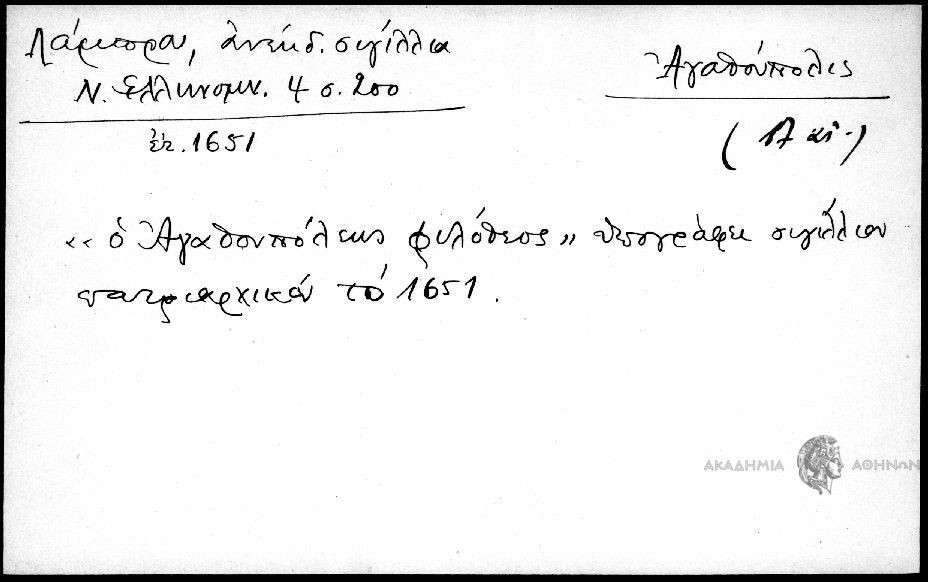 Λάμπρου, ἀνέκδ. σιγίλλια
Ν. Ἑλληνομν. 4 σ. 200
ἔτ. 1651
Ἀγαθούπολις
«ὁ Ἀγαθουπόλεως Φιλόθεος» ὑπογράφει σιγίλλιον
πατριαρχικόν τὸ 1651.
ΑΚΑΔΗΜΙΑ ΑΘΗΝΩΝ